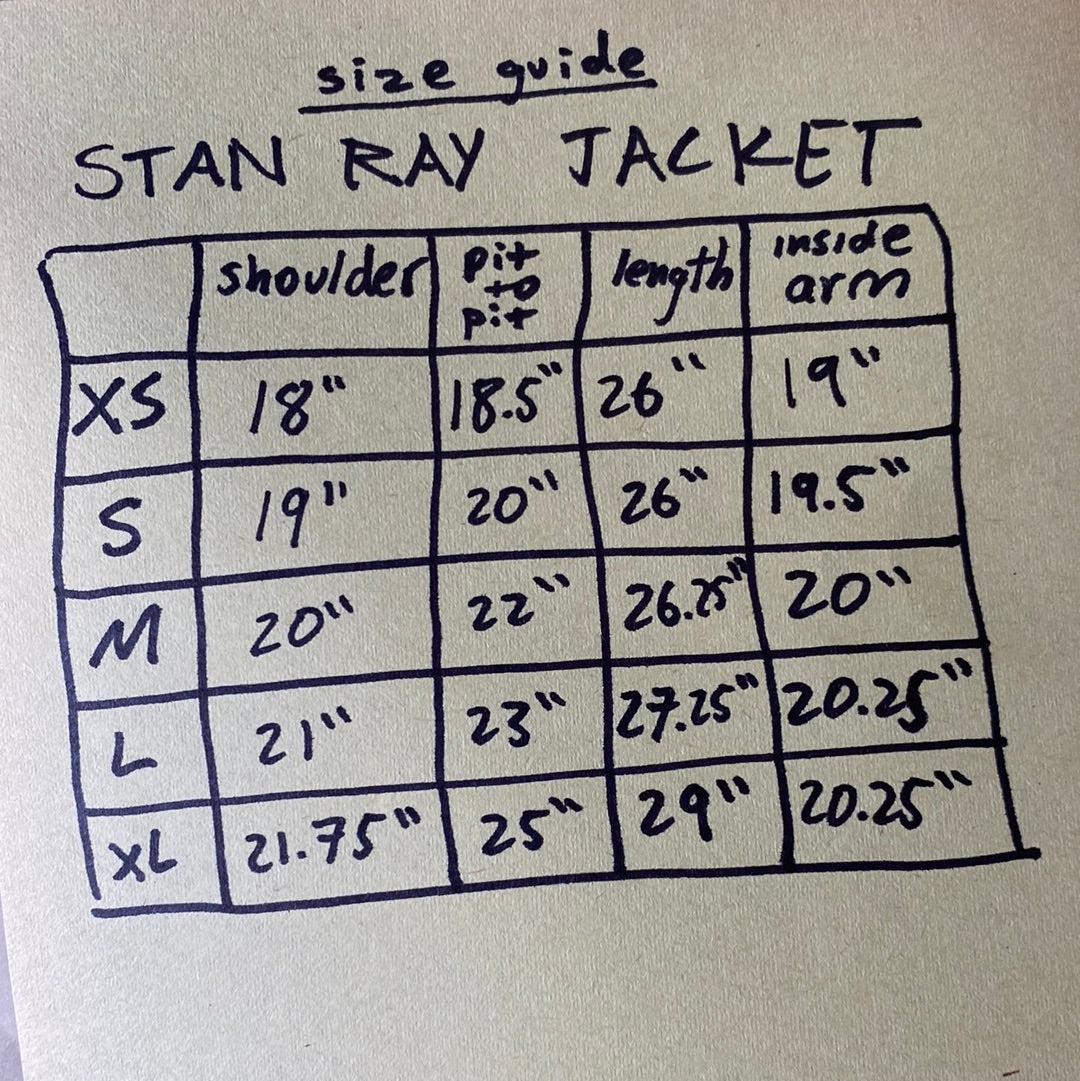 size guide
STAN RAY JACKET
shoulder pit to pit length inside arm
XS 18" 18.5" 26" 19"
S 19" 20" 26" 19.5"
M 20" 22" 26.25" 20"
L 21" 23" 27.25" 20.25"
XL 21.75" 25" 29" 20.25"